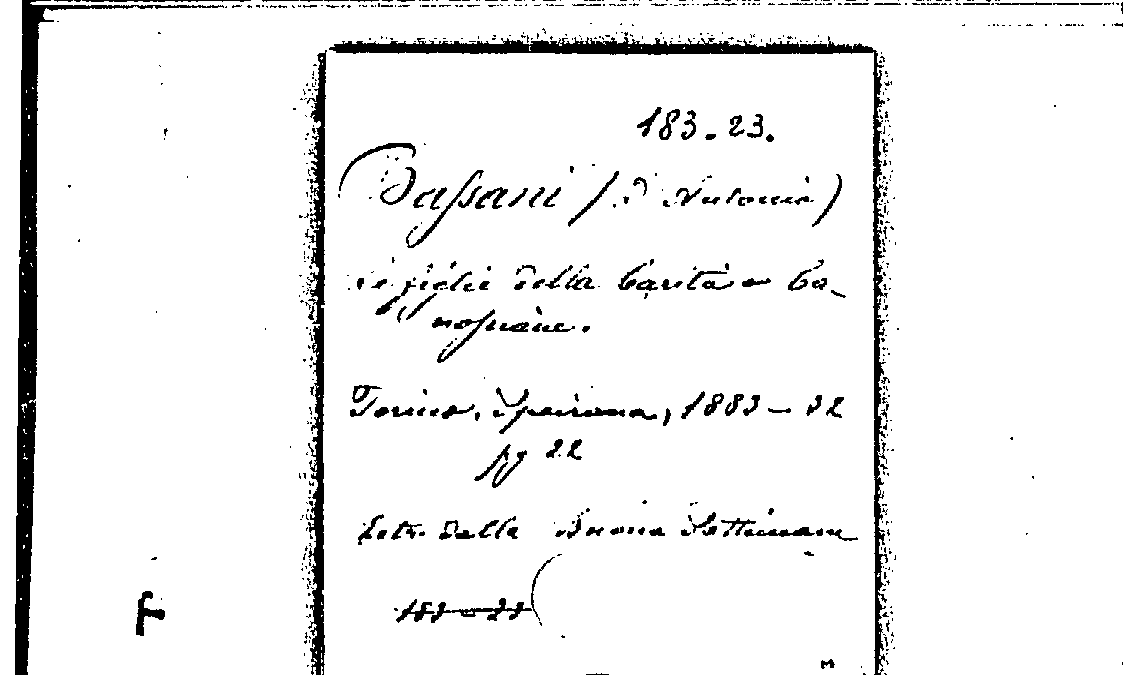 183-23.
Bassani (D. Antonio)
Le figlie della Carità Ca-
nossiane.
Torino, Speirani, 1883 - 32
pg 22
Estr. dalla Buona Settimana
183-23
F
M